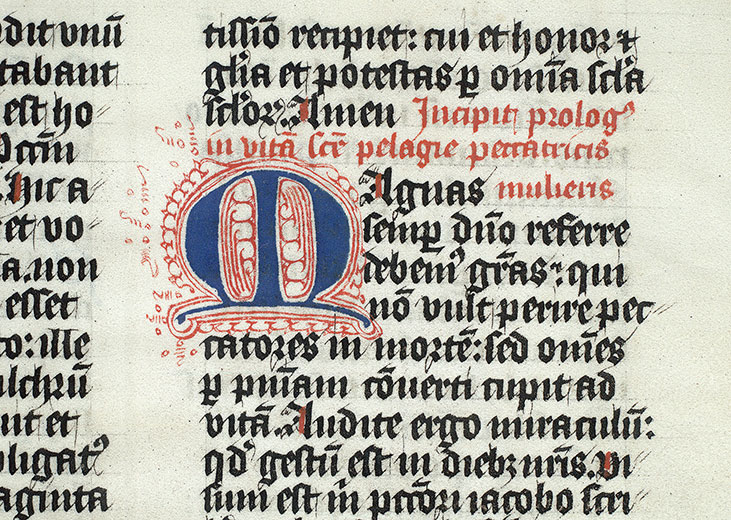 dit vnū
tabant
est ho
pccm̄
hic a
et vo
a. non
esset
to: ille
ulchrū
ut et
pligatꝰ
aginta
tissīo recipiet: cui et honor ⁊
gl̄ia et potestas ꝑ om̄ia scl̄a
scl̄oꝝ. Amen Incipit prologꝰ
in vitā sc̄e pelagie peccatricis
MAgnas mulieris
semꝑ dn̄o referre
debemꝰ gr̄as: qui
nō vult perire pec
catores in mortē: sed om̄es
ꝑ pn̄iam cōuerti cupit ad
vitā. Audite ergo miraculū:
qd̓ gestū est in diebꝫ nr̄is. Vi
sum est m̄ pctōri iacobo scri